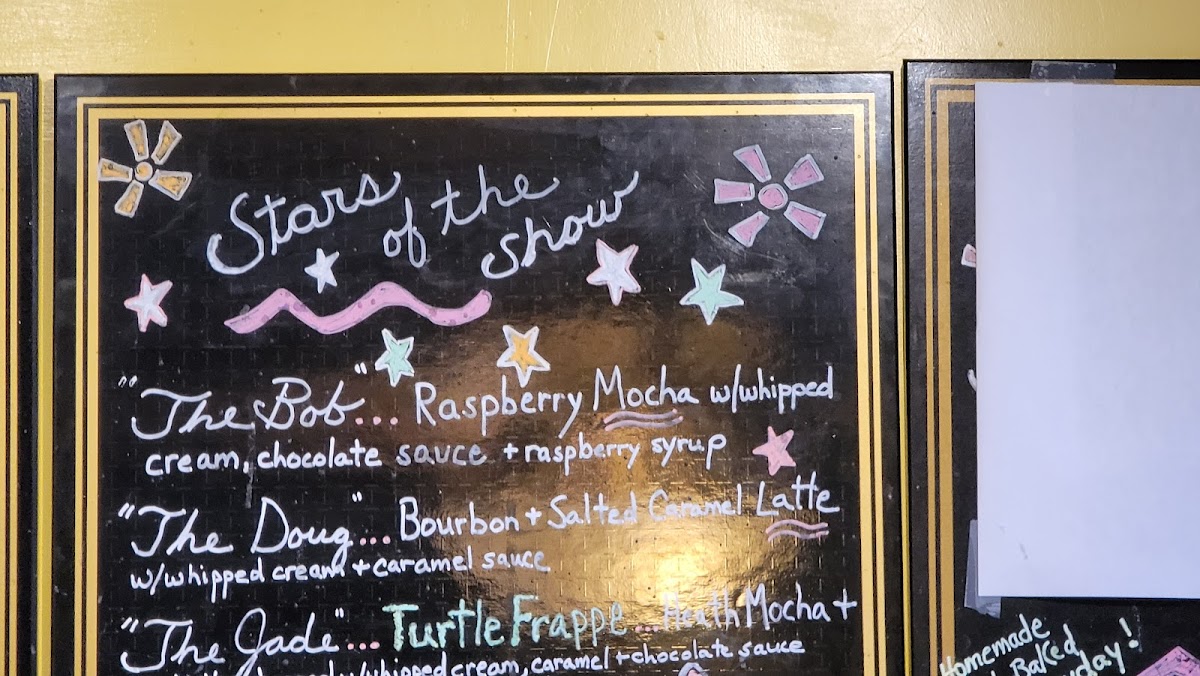 Stars of the show
"The Bob"... Raspberry Mocha w/whipped
cream, chocolate sauce + raspberry syrup
"The Doug"... Bourbon + Salted Caramel Latte
w/whipped cream + caramel sauce
"The Jade"... Turtle Frappe... Heath Mocha +
w/whipped cream, caramel + chocolate sauce
Homemade
Baked